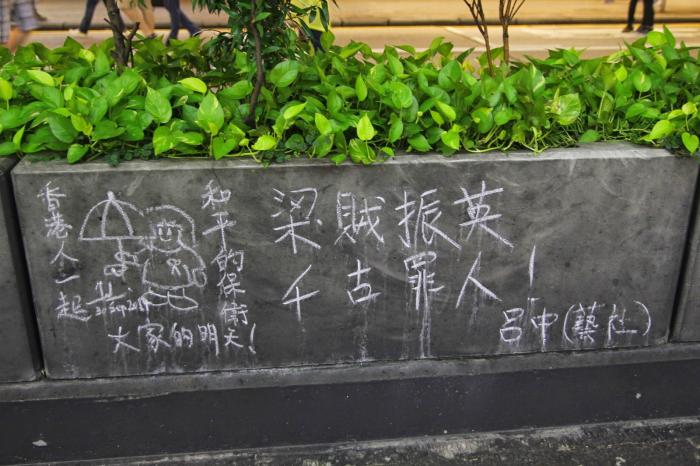 香港人一起
和平的保衛
大家的明天!
30 Sep 2014
梁賊振英
千古罪人!
呂中(藝社)